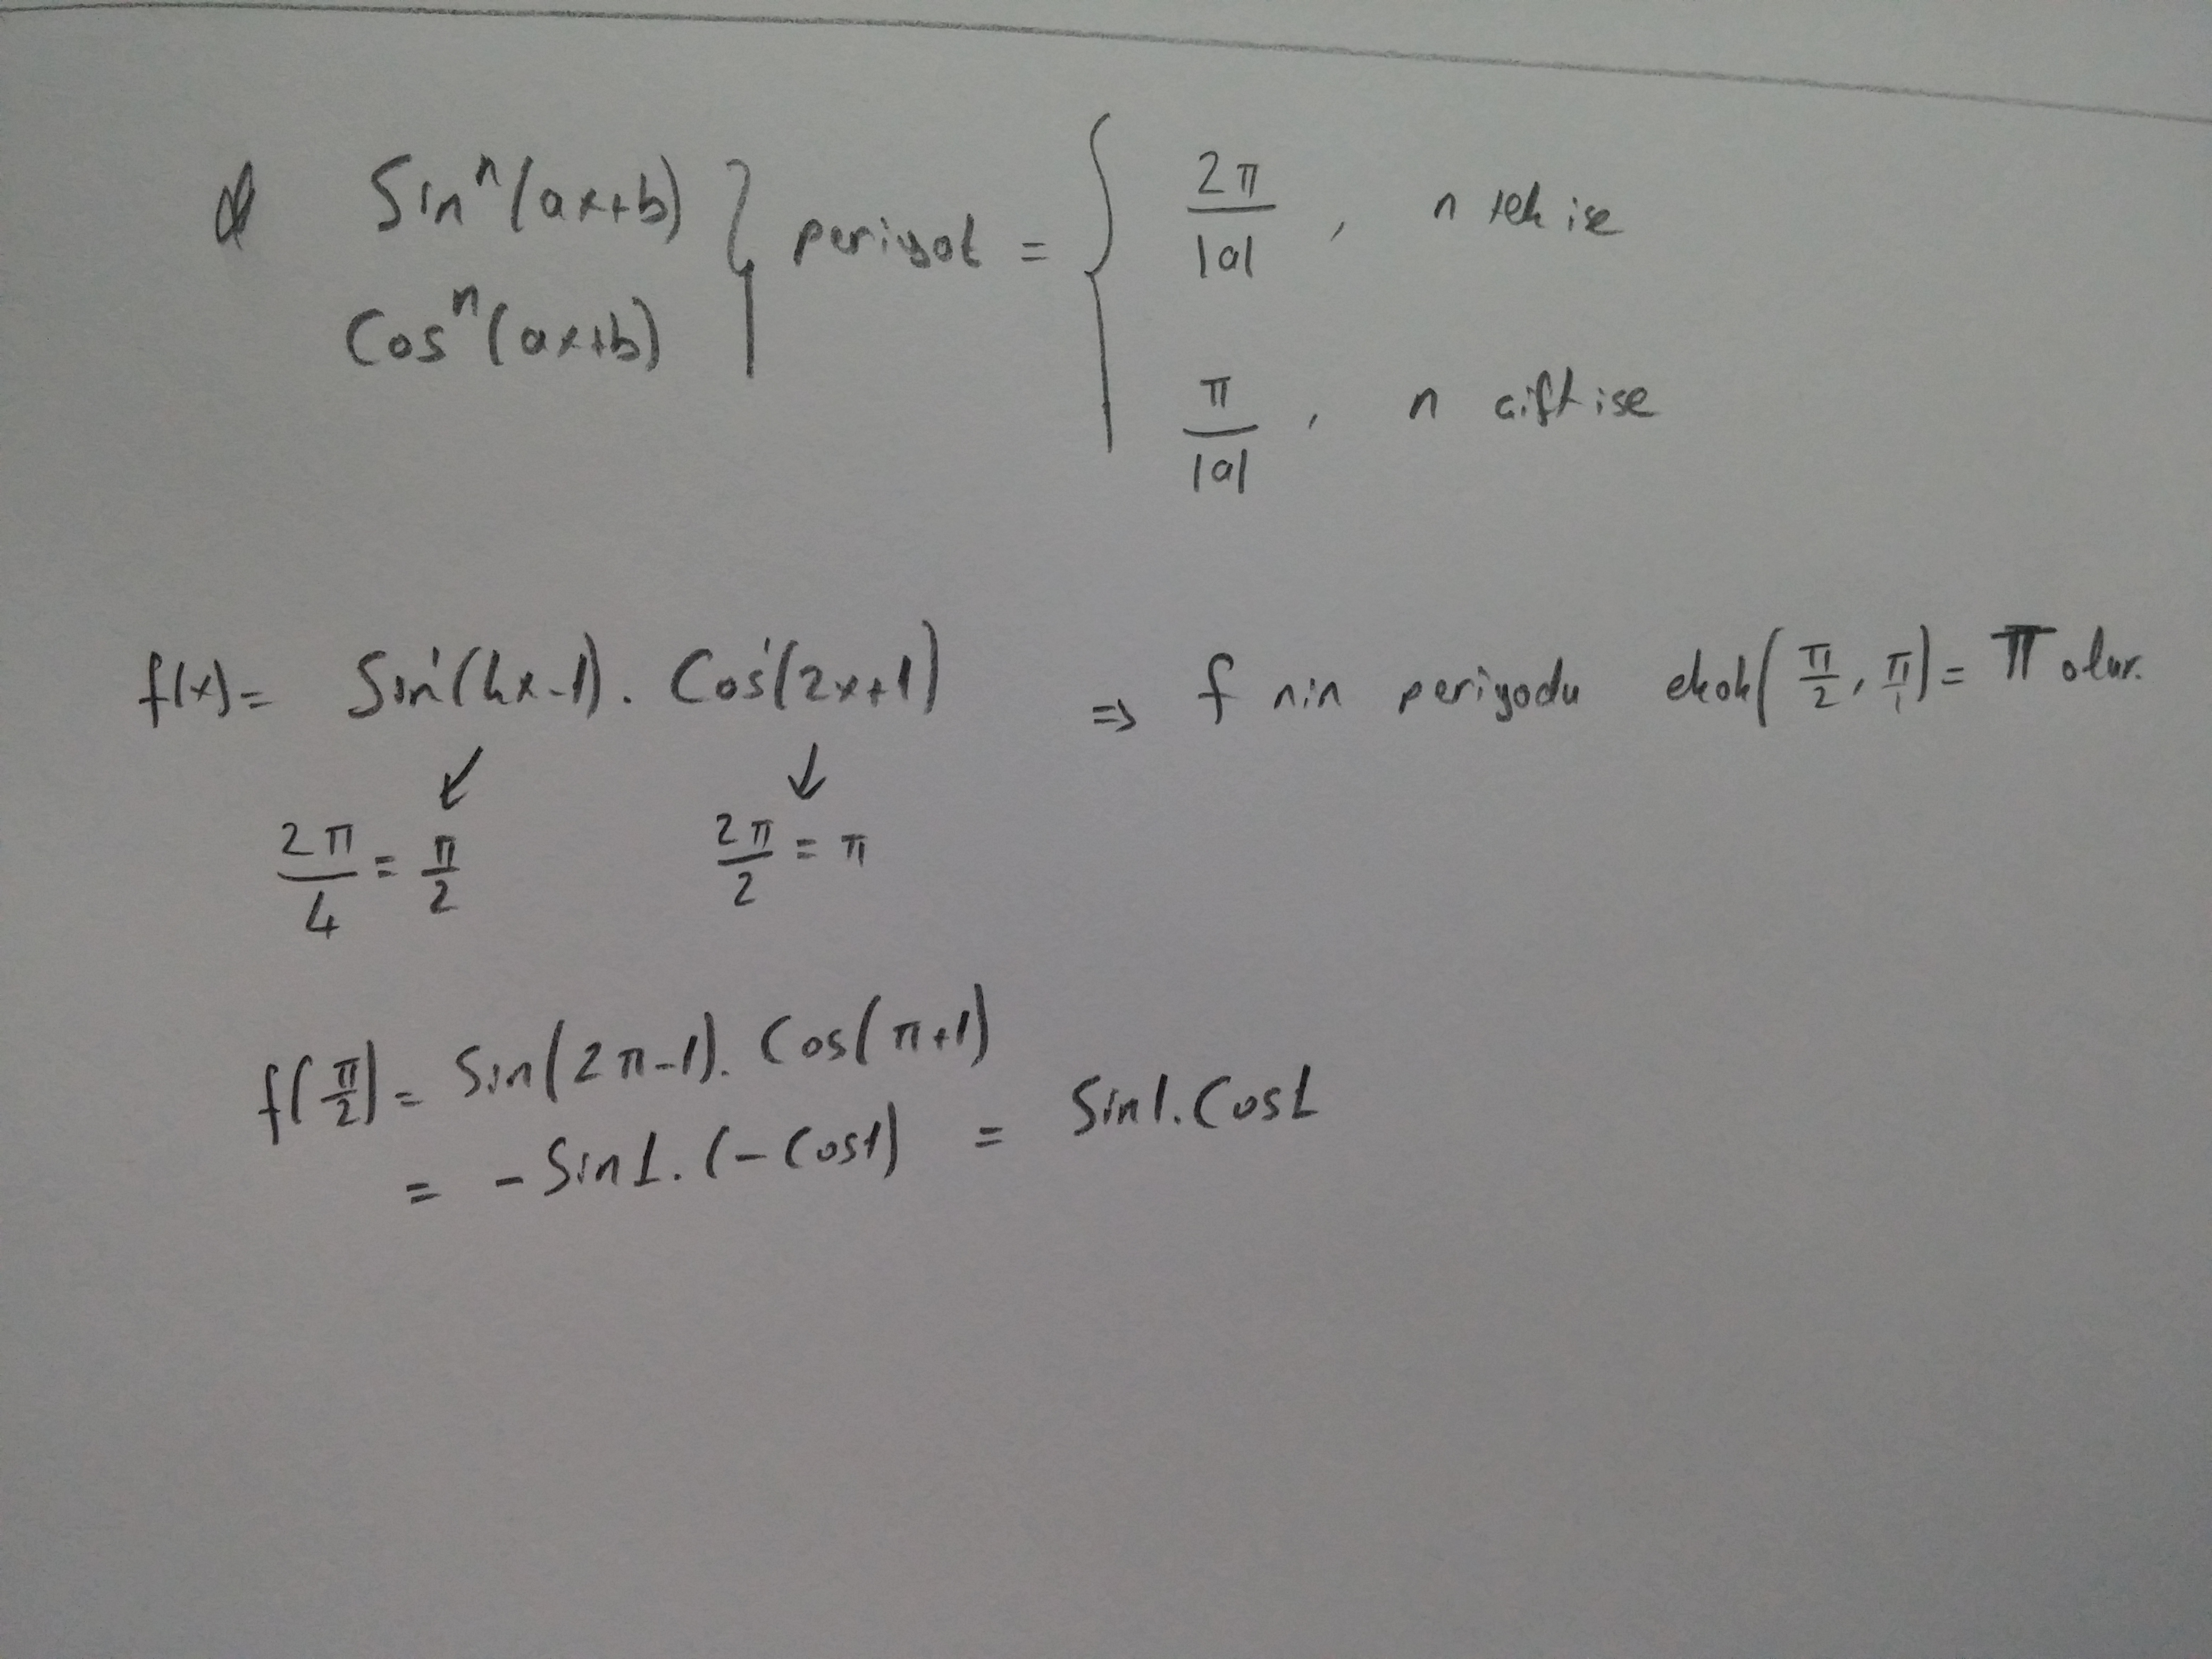 Sinⁿ(ax+b) } periyot = { 2π/|a| , n tek ise
Cosⁿ(ax+b) π/|a| , n çift ise
f(x) = Sin¹(4x-1) . Cos¹(2x+1) ⇒ f nin periyodu ekok(π/2, π/1) = π olur.
↙ ↓
2π/4 = π/2 2π/2 = π
f(π/2) = Sin(2π-1). Cos(π+1)
= -Sin1. (-Cos1) = Sin1.Cos1